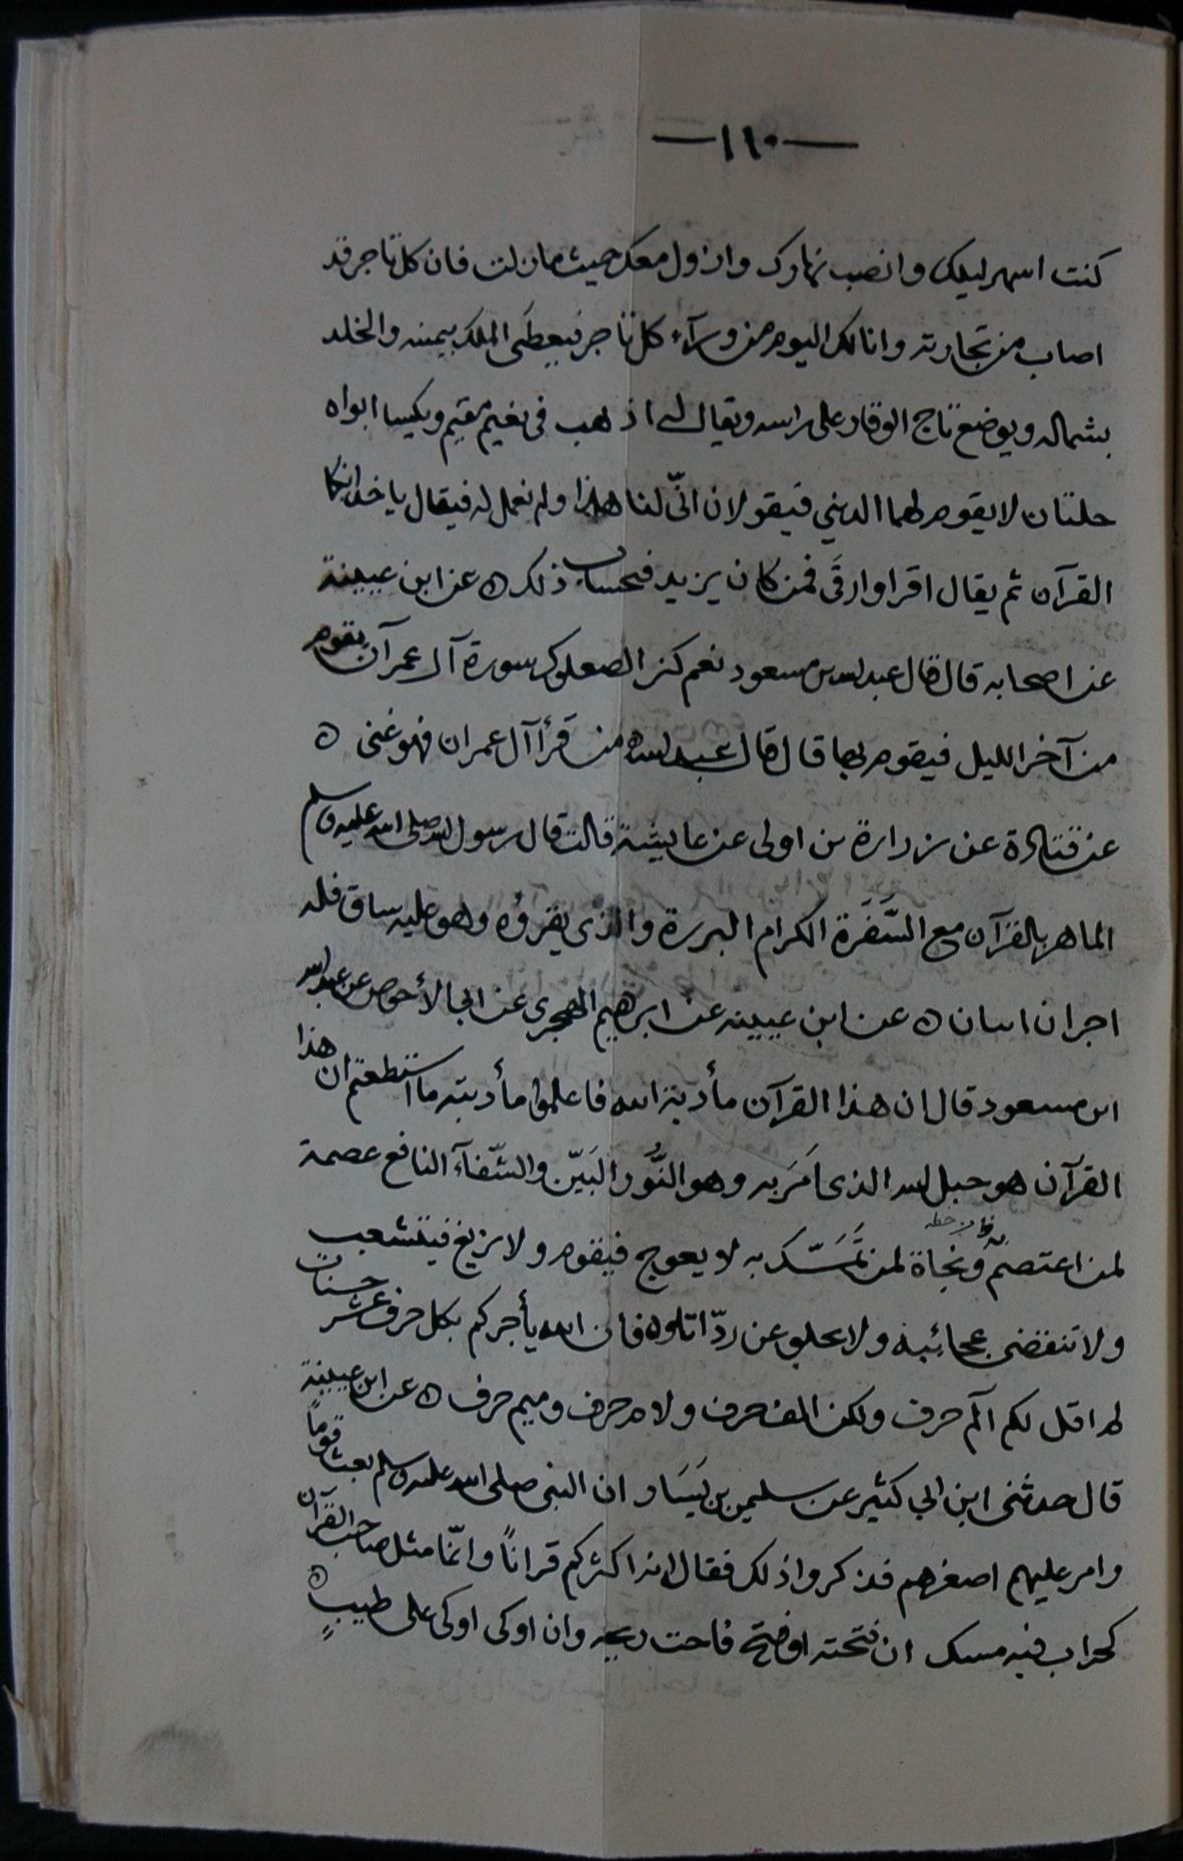 —١١٠—
كنت اسهر ليلك وانصب نهارك وازاول معك حيث مازلت فان كل تاجر قد
اصاب من تجارته وانا لك اليوم من وراء كل تاجر فيعطى الملك بيمينه والخلد
بشماله ويوضع تاج الوقار على راسه ويقال له اذهب فى نعيم مقيم ويكسا ابواه
حلتان لا يقوم لهما الدنيى فيقولان انّى لنا هذا ولم نعمل له فيقال باخذابنكما
القرآن ثم يقال اقرا وارقَى فمن كان يزيد فحساب ذلك ه عن ابن عيينة
عن اصحابه قال قال عبدالله بن مسعود نعم كنز الصعلوك سورة آل عمرآن يقوم
من آخر الليل فيقوم بها قال قال عبدالله من قرأ آل عمران فهو غنى ه
عن قتادة عن زرارة بن اوفى عن عايشة قالت قال رسول الله صلى الله عليه وسلم
الماهر بالقرآن مع السَّفَرَة الكرام البررة والذى يقرؤه وهو عليه ساق فله
اجران اىنان ه عن ابن عيينه عن ابرهيم الهجرى عن ابى الأحوص عن عبدالله
ابن مسعود قال ان هذا القرآن مأدبة الله فاعلموا مأدبته ما استطعتم ان هذا
القرآن هو حبل الله الذى اَمَرَ به وهو النُّور البَيّن والشّفآء النافع عصمة
لمن اعتصم به ونجاة لمن تَمَسَّك به لا يعوج فيقوم ولا يزيغ فيتشعب
ولا تنقضى عجائبه ولا يخلق عن ردّ اتلوه فان الله يأجركم بكل حرف عشر حسنات
لم اقل لكم الٓم حرف ولكن الف حرف ولام حرف وميم حرف ه عن ابن عيينة
قال حدثنى ابن ابي كثير عن سليمن بن يَسَار ان النبى صلى الله عليه وسلم بعث قوماً
وامر عليهم اصغرهم فذكروا ذلك فقال انه اكثركم قراناً وانّما مثل صاحب القرآن
كجراب فيه مسك ان فتحته او فتح فاحت ريحه وان اوكى اوكى على طيبٍ ه